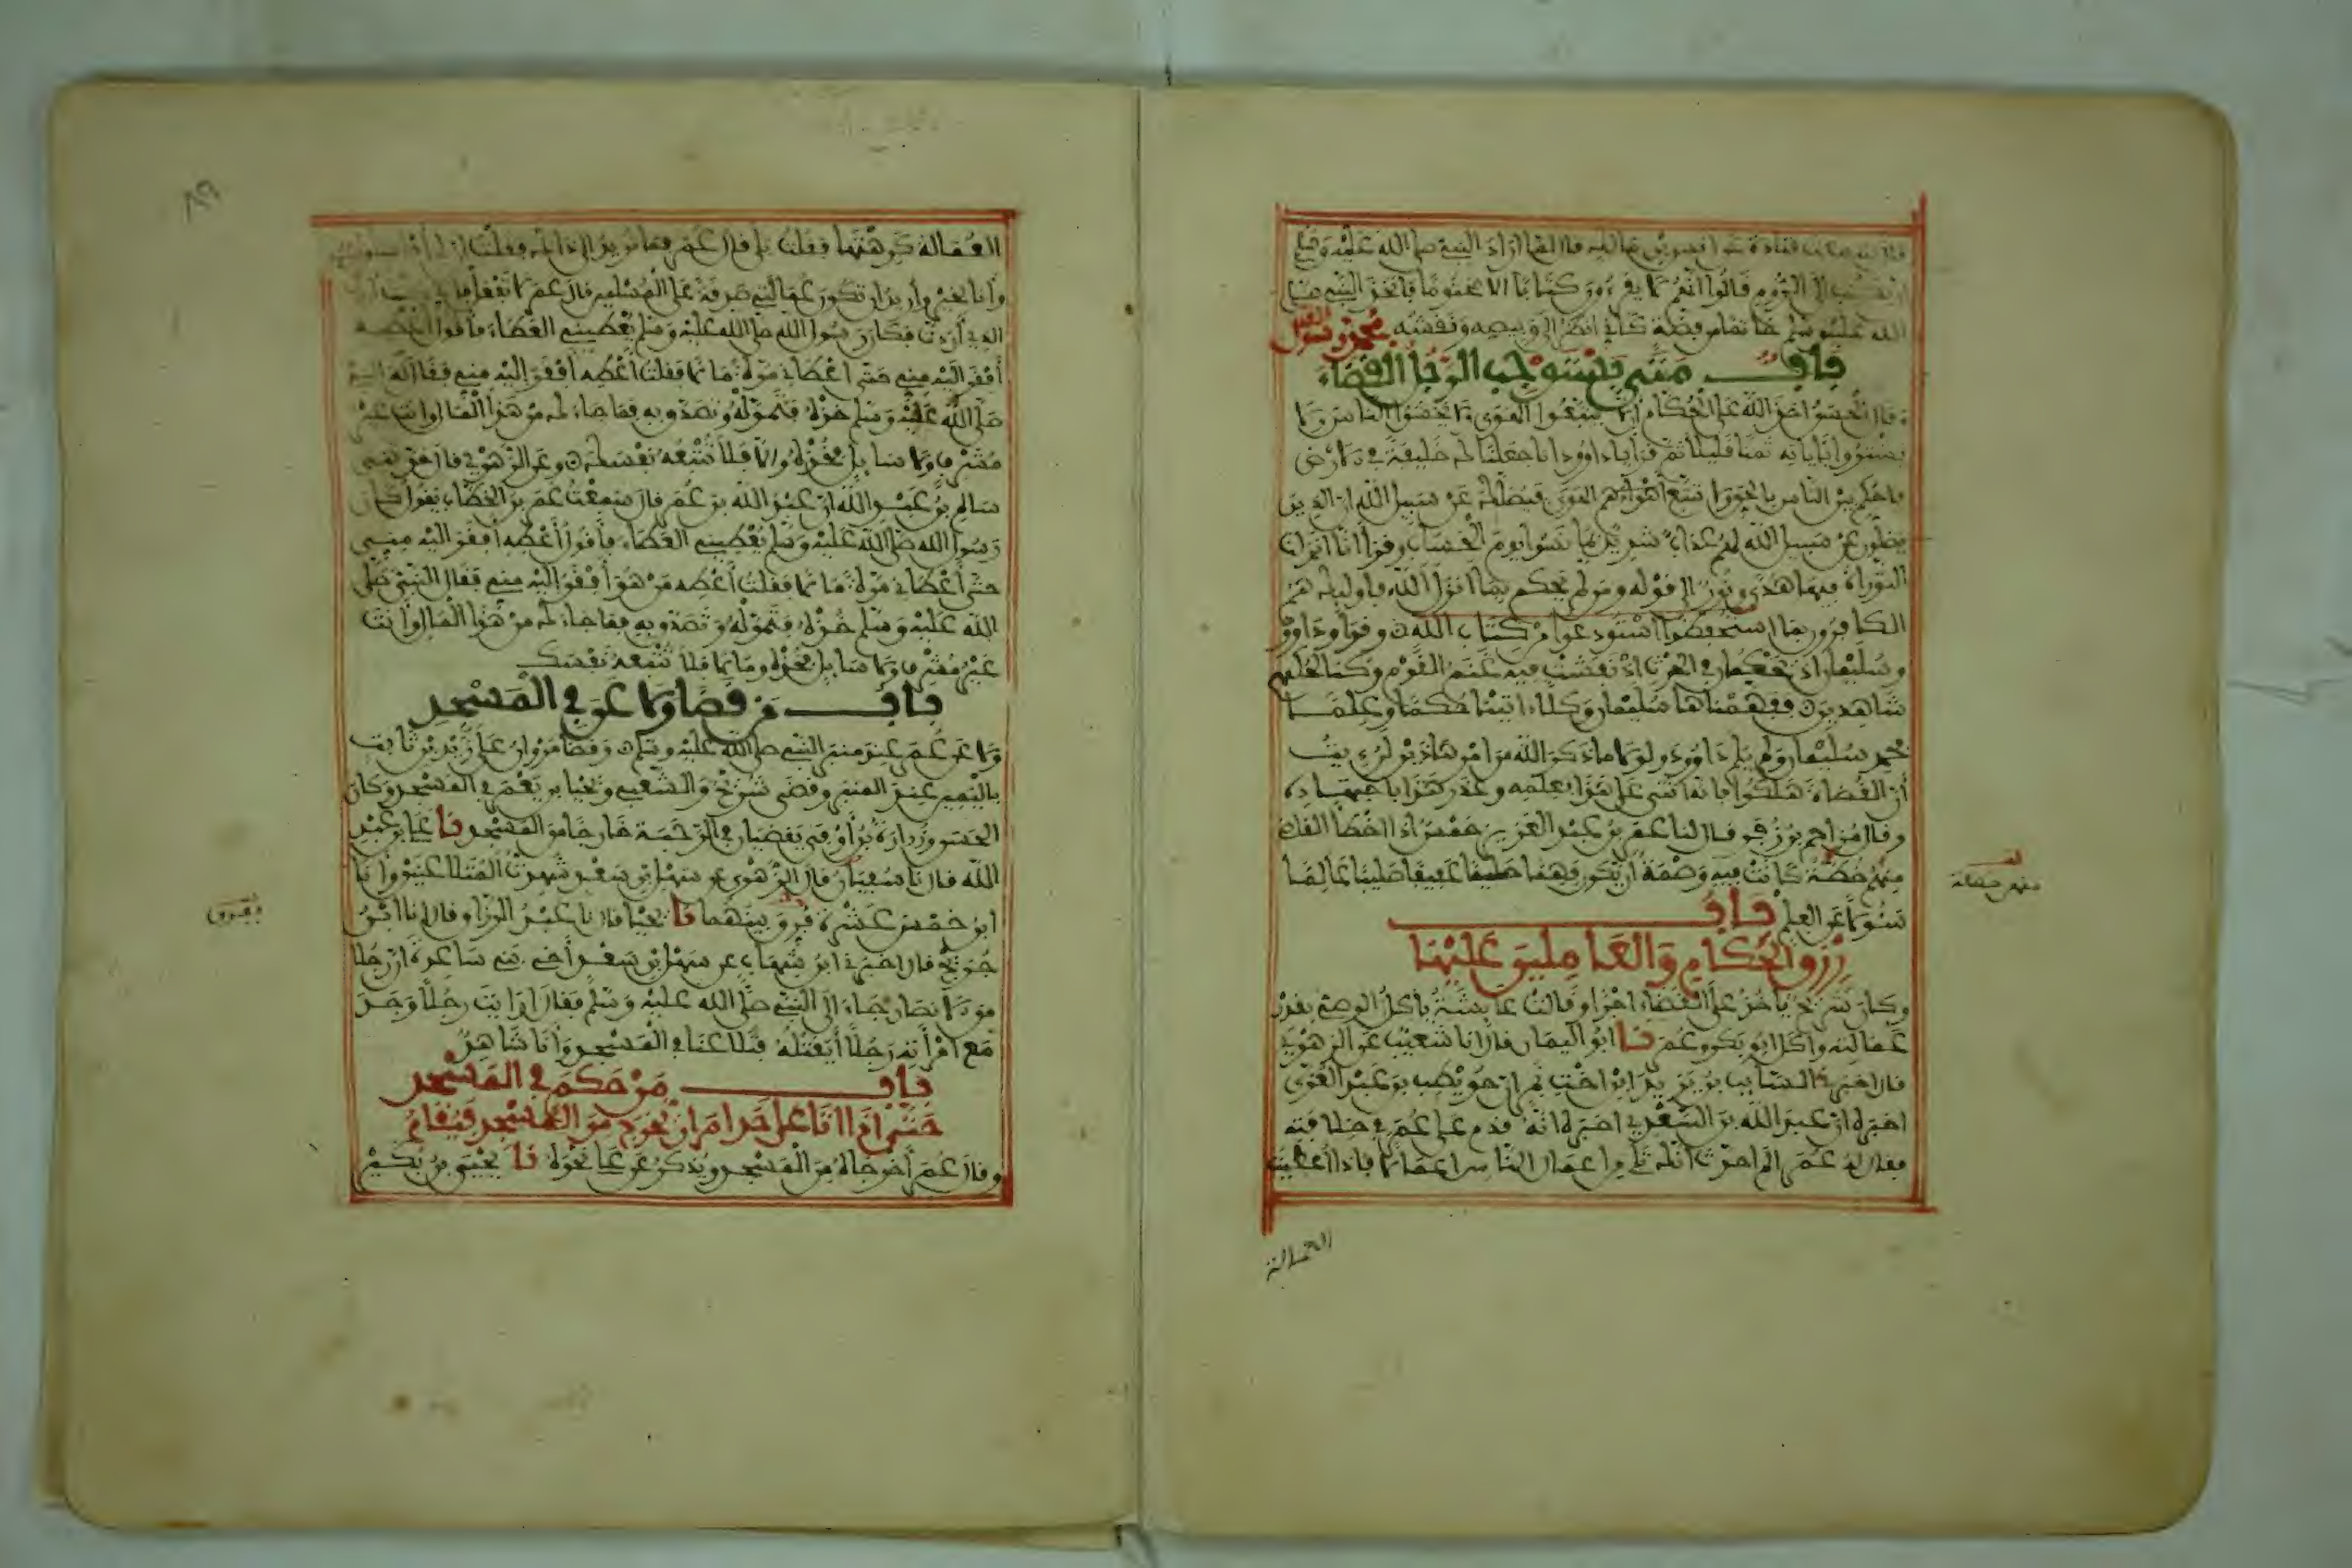 قال سمعت قتادة عن أنس بن مالك قال لما أراد النبي صلى الله عليه وسلم
أن يكتب إلى الروم قالوا إنهم لا يقرءون كتابا إلا مختوما فاتخذ النبي صلى
الله عليه وسلم خاتما من فضة كأني أنظر إلى وبيصه ونقشه محمد رسول الله
باب متى يستوجب الرجل القضاء
وقال الحسن أخذ الله على الحكام ألا يتبعوا الهوى ولا يخشوا الناس ولا
يشتروا بآياته ثمنا قليلا ثم قرأ يا داوود إنا جعلناك خليفة في الأرض
فاحكم بين الناس بالحق ولا تتبع الهوى فيضلك عن سبيل الله إن الذين
يضلون عن سبيل الله لهم عذاب شديد بما نسوا يوم الحساب وقرأ إنا أنزلنا
التوراة فيها هدى ونور إلى قوله ومن لم يحكم بما أنزل الله فأوليك هم
الكافرون بما استحفظوا استودعوا من كتاب الله وقرأ وداوود
وسليمان إذ يحكمان في الحرث إذ نفشت فيه غنم القوم وكنا لحكمهم
شاهدين ففهمناها سليمان وكلا آتينا حكما وعلما
فحمد سليمان ولم يلم داوود ولولا ما ذكر الله من أمر هاذين لرءيت
أن القضاة هلكوا فإنه أثنى على هذا بعلمه وعذر هذا باجتهاده
وقال مزاحم بن زفر قال لنا عمر بن عبد العزيز خمس إذا أخطأ القاضي
منهم خطة كانت فيه وصمة أن يكون فهما حليما عفيفا صليبا عالما
سئولا عن العلم باب
رزق الحكام والعاملين عليها
وكان شريح يأخذ على القضاء أجرا وقالت عائشة يأكل الوصي بقدر
عمالته وأكل أبو بكر وعمر نا أبو اليمان قال أنا شعيب عن الزهري
قال أخبرني السائب بن يزيد ابن أخت نمر أن حويطب بن عبد العزى
أخبره أن عبد الله بن السعدي أخبره أنه قدم على عمر في خلافته
فقال له عمر ألم أحدث أنك تلي من أعمال الناس أعمالا فإذا أعطيت
العمالة
منهم خصلة
العمالة كرهتها فقلت بلى قال عمر فما تريد إلى ذلك فقلت إن لي أفراسا
وأنا بخير وأريد أن تكون عمالتي صدقة على المسلمين قال عمر لا تفعل فإني كنت أردت
الذي أردت فكان رسول الله صلى الله عليه وسلم يعطيني العطاء فأقول أعطه
أفقر إليه مني حتى أعطاني مرة مالا فقلت أعطه أفقر إليه مني فقال له النبي
صلى الله عليه وسلم خذه فتموله وتصدق به فما جاءك من هذا المال وأنت غير
مشرف ولا سائل فخذه وإلا فلا تتبعه نفسك وعن الزهري قال حدثني
سالم بن عبد الله أن عبد الله بن عمر قال سمعت عمر بن الخطاب يقول كان
رسول الله صلى الله عليه وسلم يعطيني العطاء فأقول أعطه أفقر إليه مني
حتى أعطاني مرة مالا فقلت أعطه من هو أفقر إليه مني فقال النبي صلى
الله عليه وسلم خذه فتموله وتصدق به فما جاءك من هذا المال وأنت
غير مشرف ولا سائل فخذه وما لا فلا تتبعه نفسك
باب من قضا ولاعن في المسجد
ولاعن عمر عند منبر النبي صلى الله عليه وسلم وقضا مروان على زيد بن ثابت
باليمين عند المنبر وقضى شريح والشعبي ويحيا بن يعمر في المسجد وكان
الحسن وزرارة بن أوفى يقضيان في الرحبة خارجا من المسجد نا علي بن عبد
الله قال نا سفيان قال الزهري عن سهل بن سعد شهدت المتلاعنين وأنا
ابن خمس عشرة فرق بينهما نا يحيا قال نا عبد الرزاق قال أنا ابن
جريج قال أخبرني ابن شهاب عن سهل بن سعد أخي بني ساعدة أن رجلا
من الأنصار جاء إلى النبي صلى الله عليه وسلم فقال أرايت رجلا وجد
مع امرأته رجلا أيقتله فتلاعنا في المسجد وأنا شاهد
باب من حكم في المسجد
حتى إذا أتا على حد أمر أن يخرج من المسجد فيقام
وقال عمر أخرجاه من المسجد ويذكر عن علي نحوه نا يحيى بن بكير